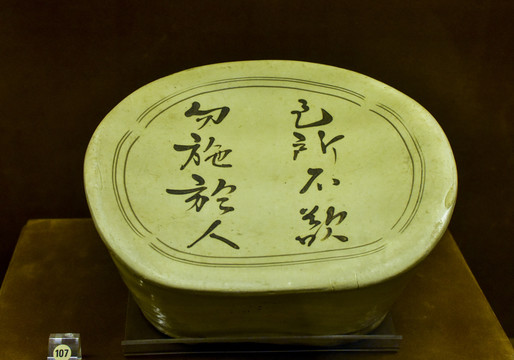 己所不欲
勿施於人
107